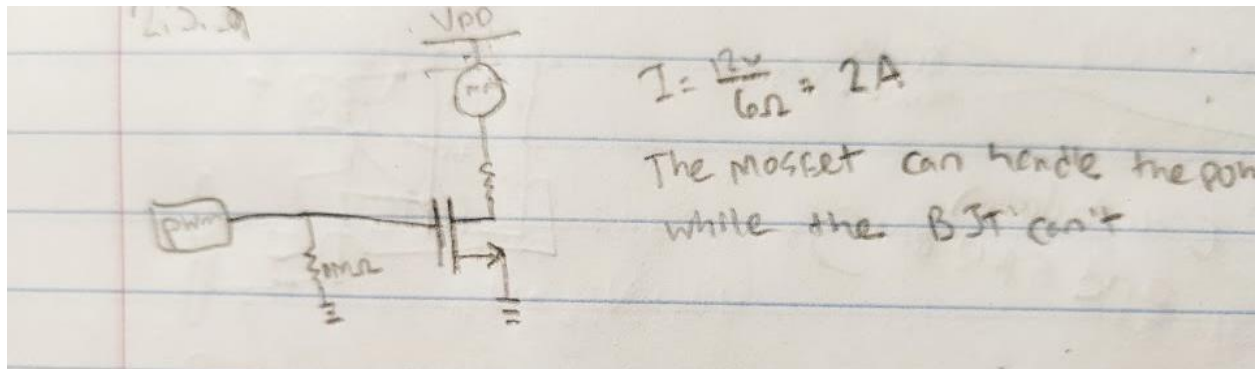 VDD
I = 12v/6Ω = 2A
The mosset can handle the pow
while the BJT can't
pwm